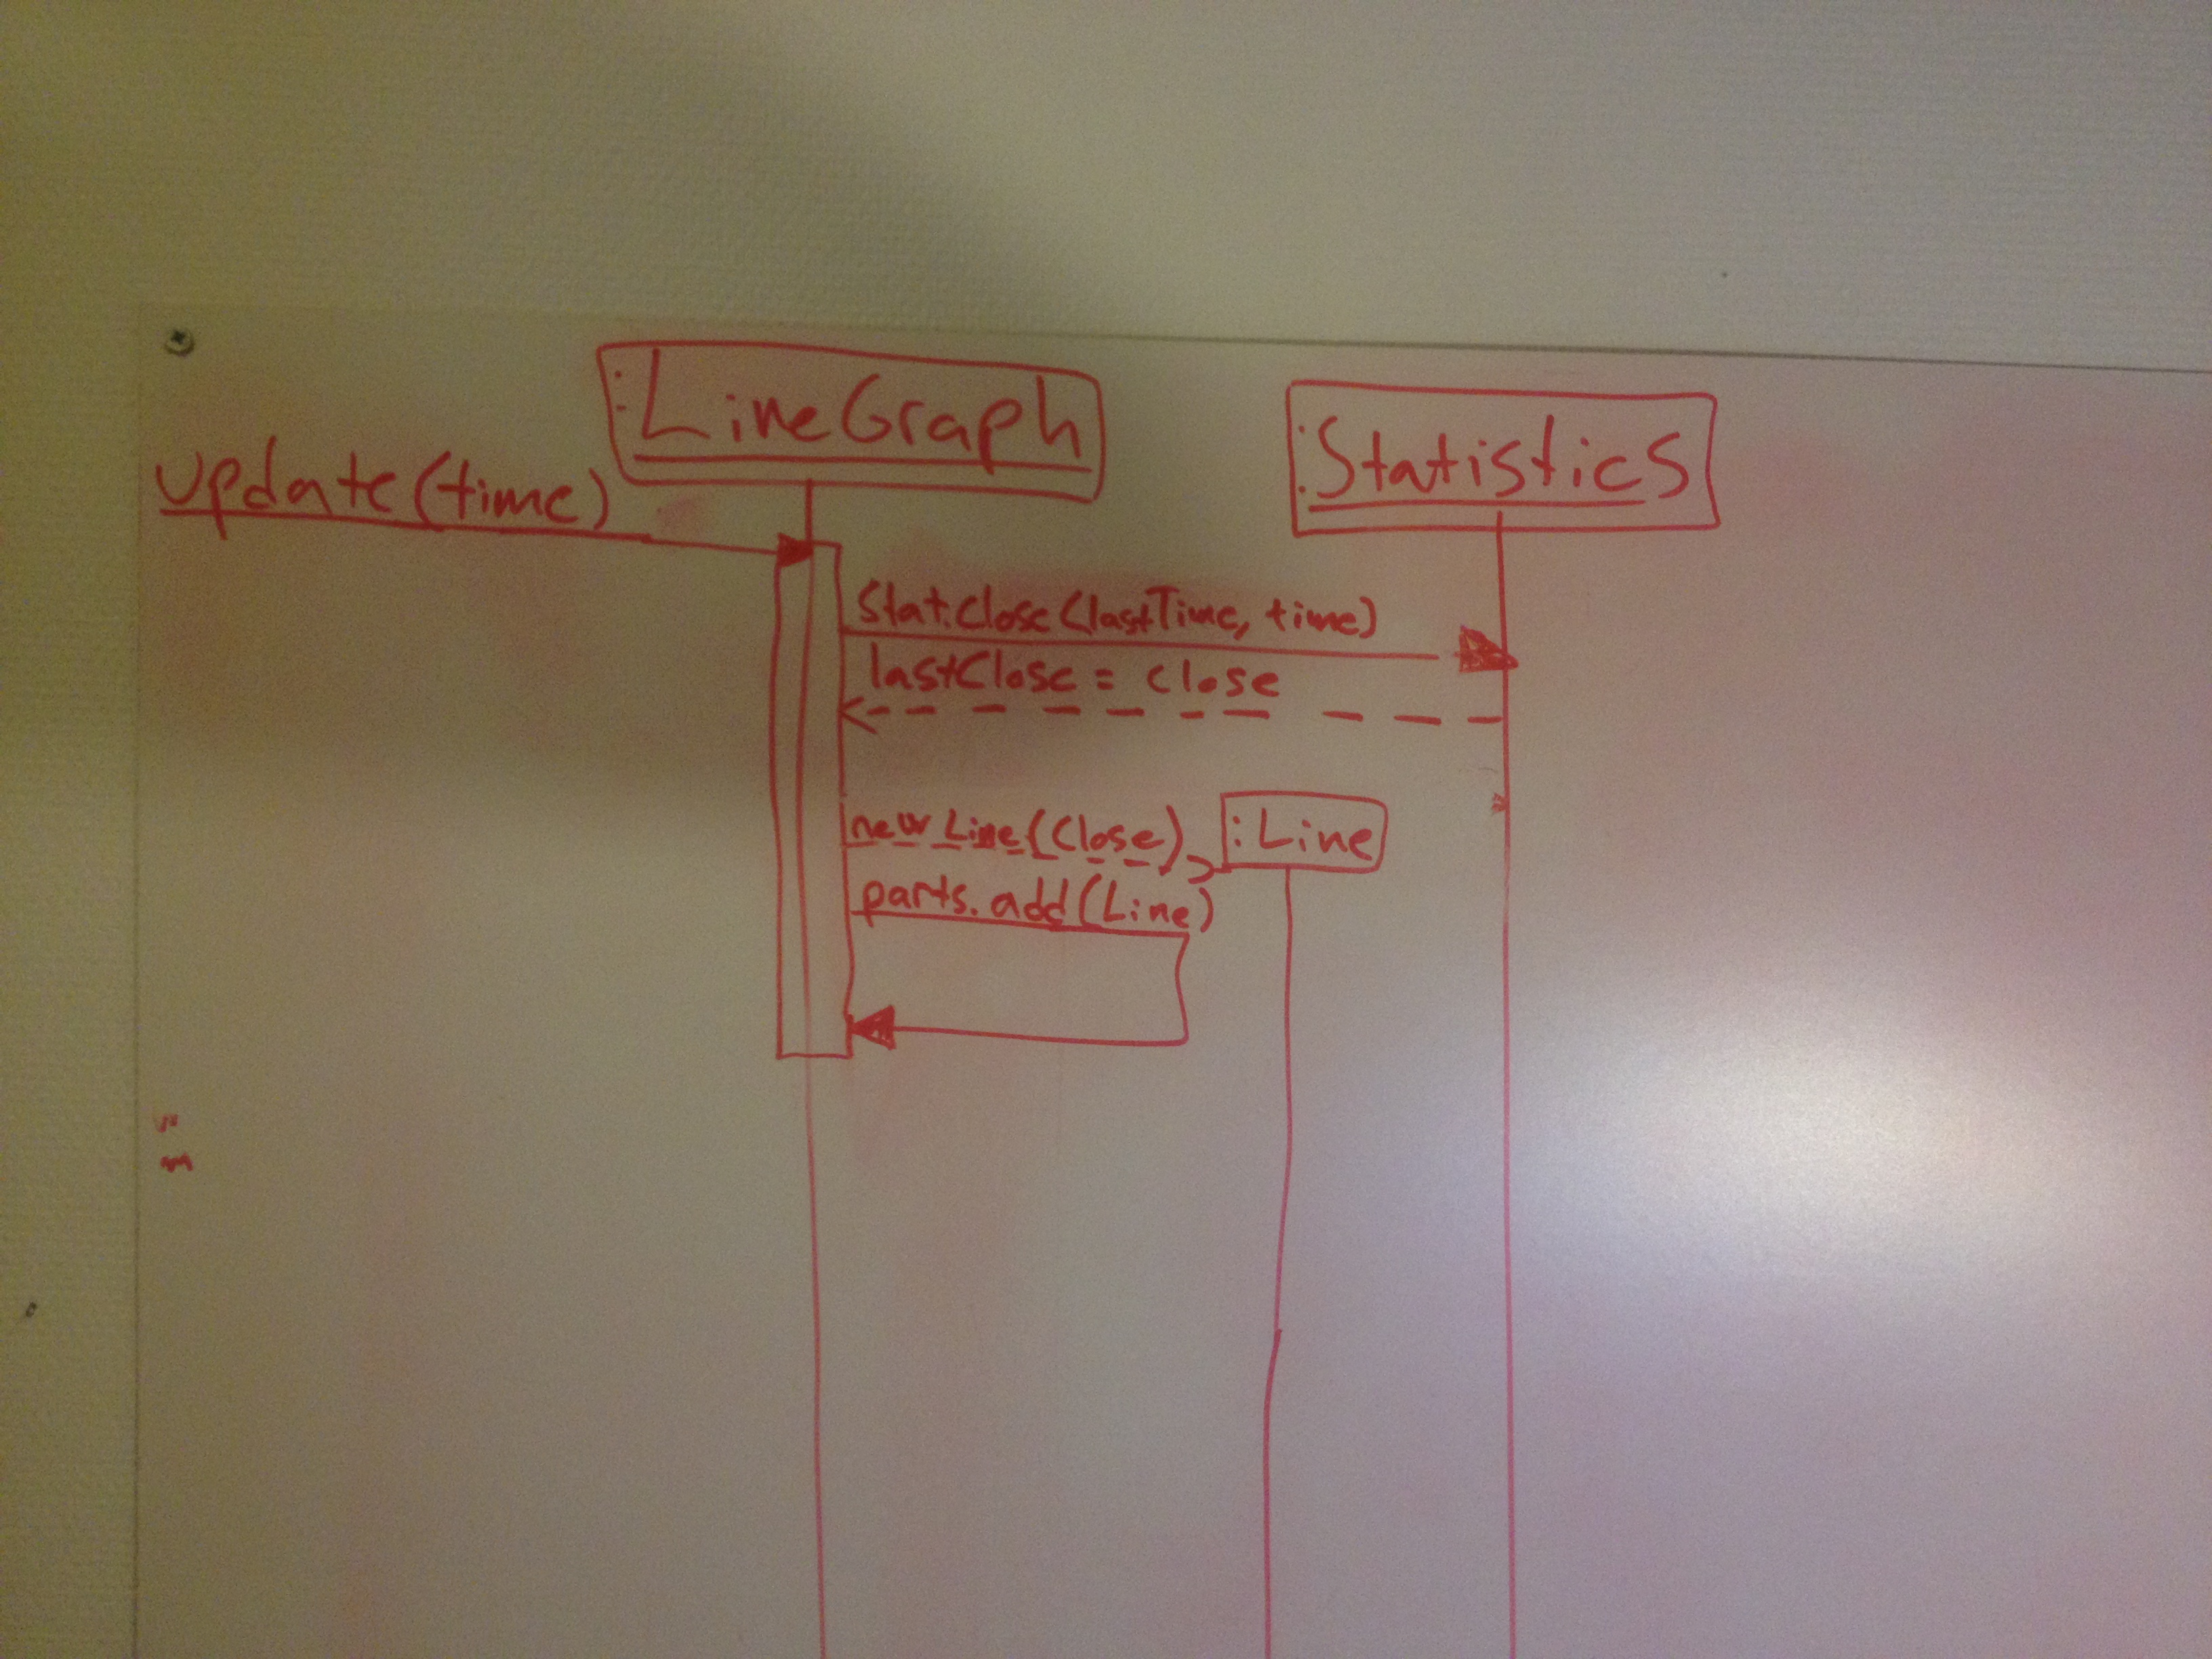 :LineGraph
:Statistics
update(time)
Stat.Close(lastTime, time)
lastClose = close
new Line(Close)
:Line
parts.add(Line)